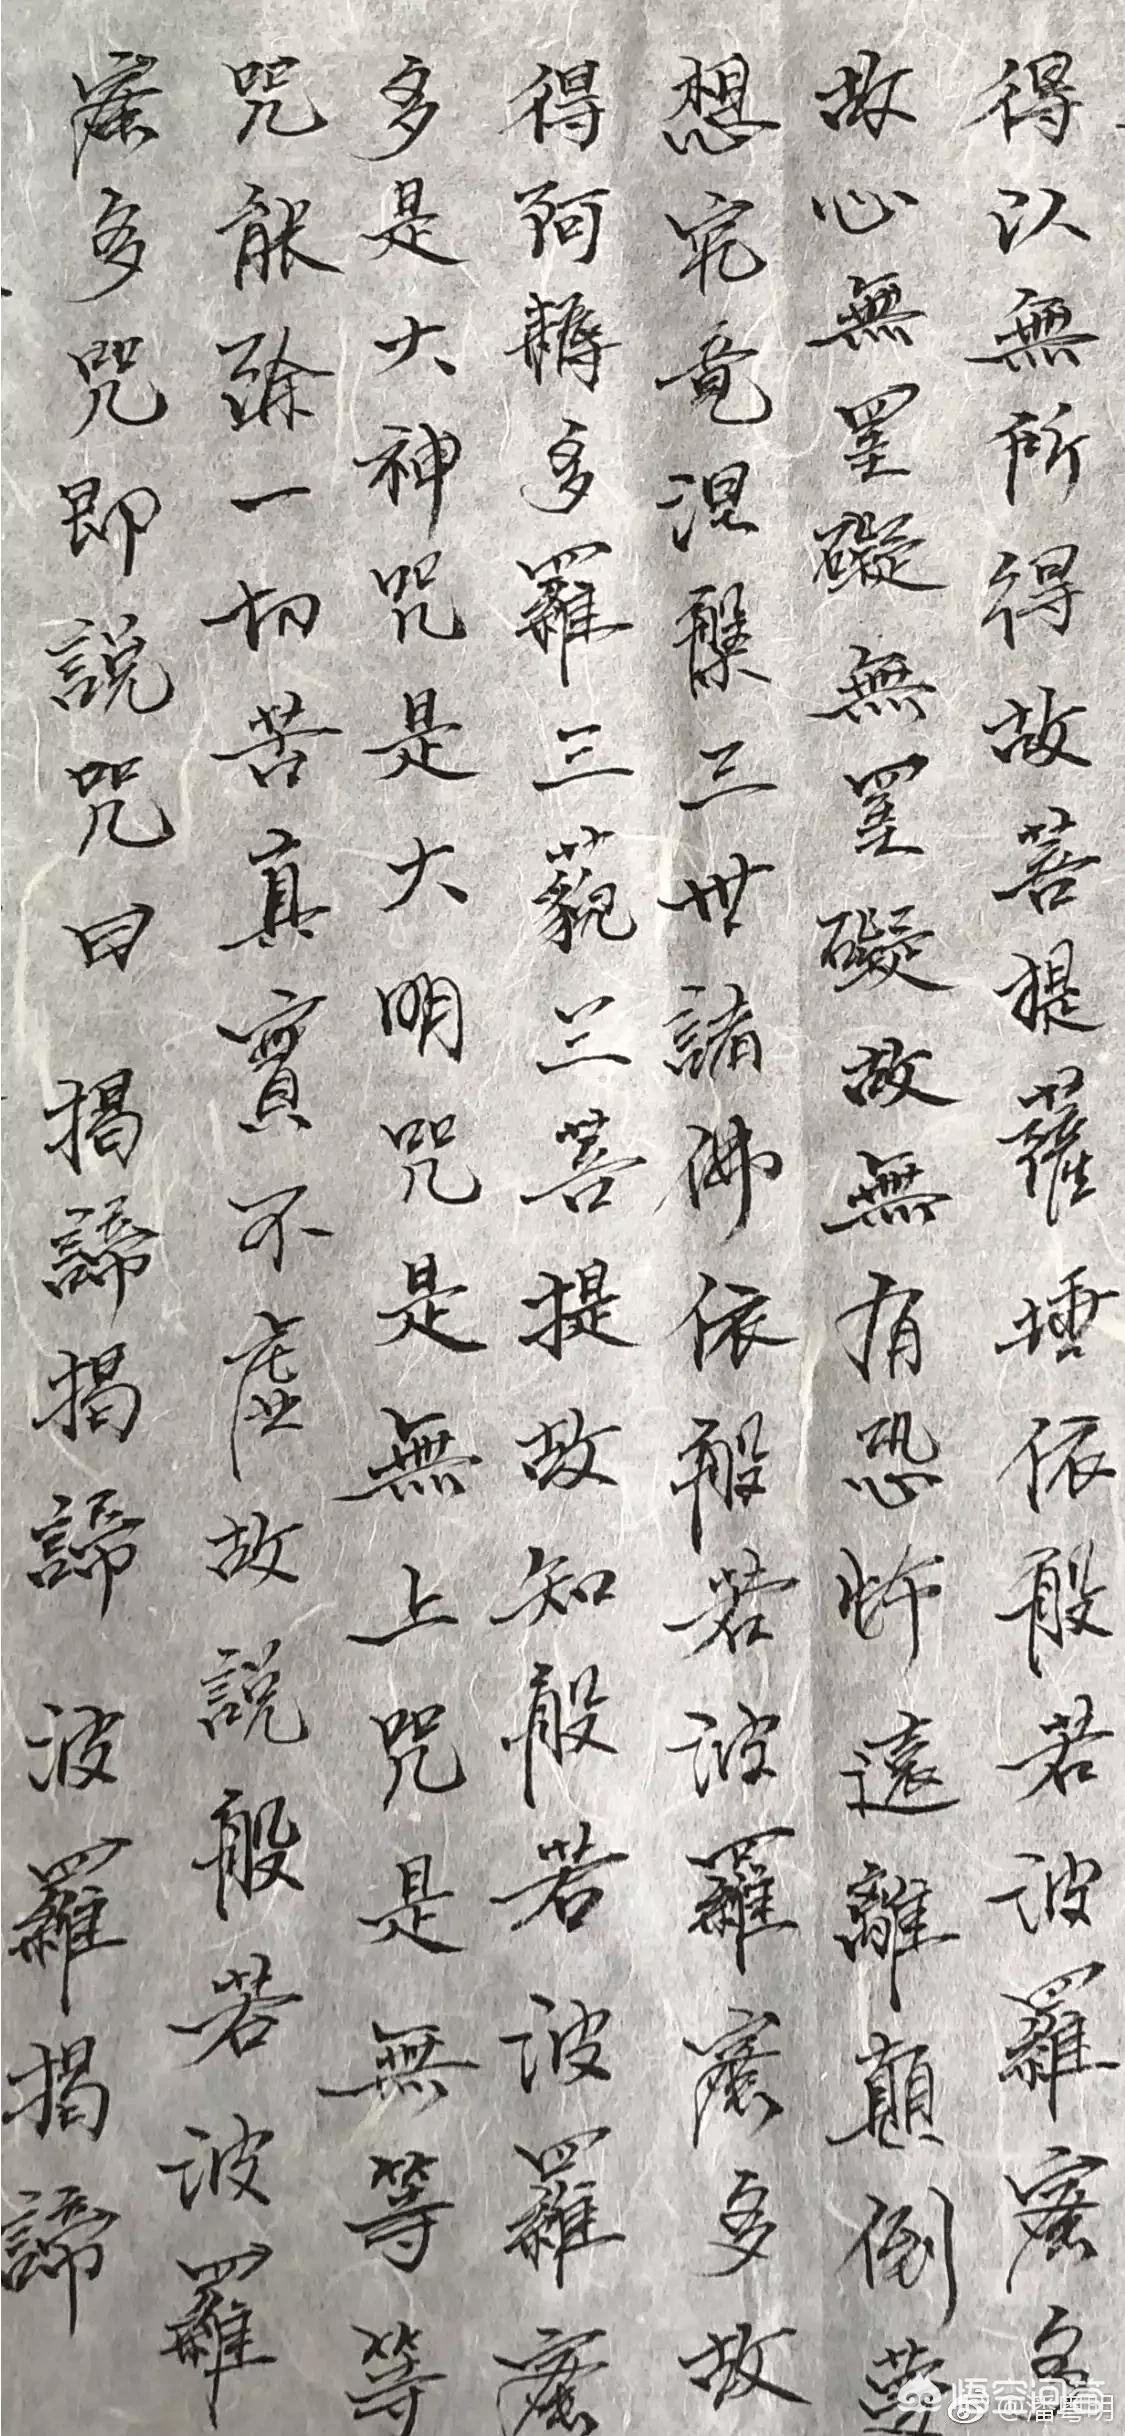 得以無所得故菩提薩埵依般若波羅蜜多
故心無罣礙無罣礙故無有恐怖遠離顛倒夢
想究竟涅槃三世諸佛依般若波羅蜜多故
得阿耨多羅三藐三菩提故知般若波羅蜜
多是大神咒是大明咒是無上咒是無等等
咒能除一切苦真實不虛故説般若波羅
蜜多咒即説咒曰 揭諦揭諦 波羅揭諦
悟空问答
@潘粤明